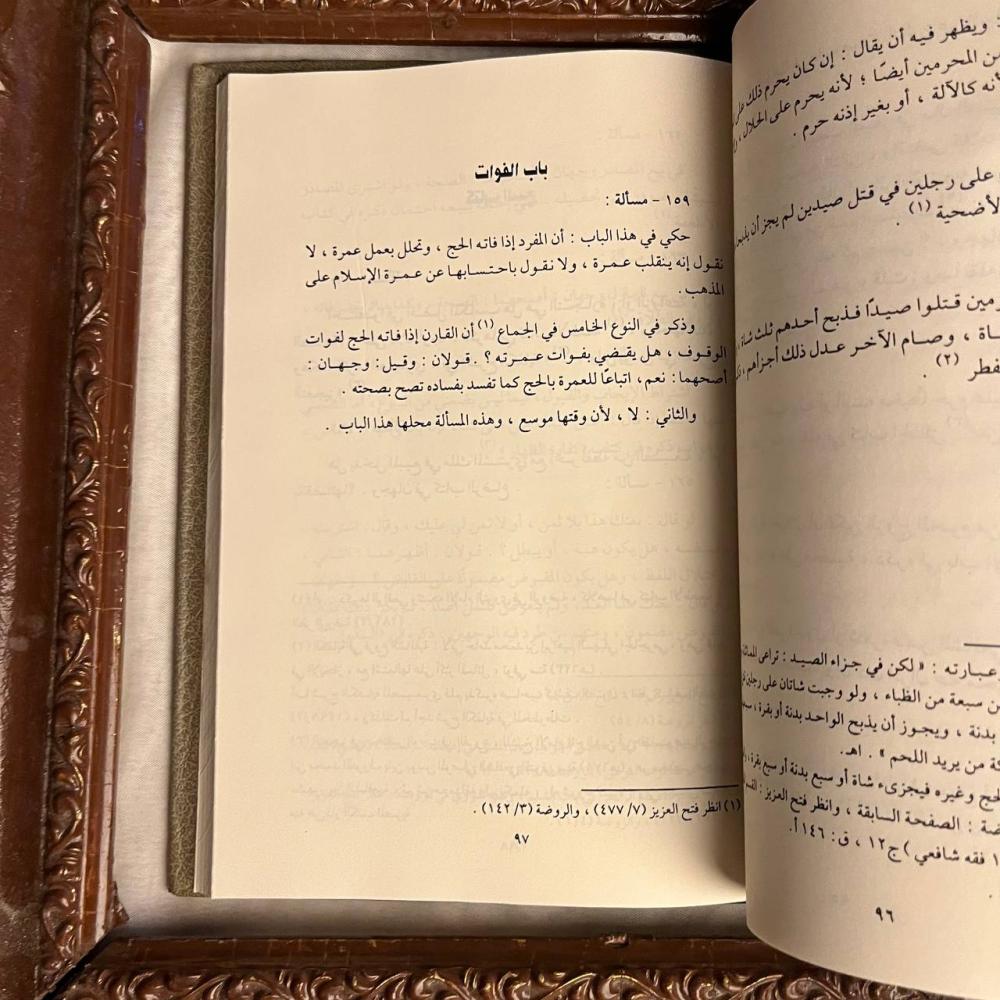 ويظهر فيه أن يقال : إن كان يحرم ذلك على
من المحرمين أيضًا ؛ لأنه يحرم على الحلال ،
أنه كالآلة ، أو بغير إذنه حرم .
على رجلين في قتل صيدين لم يجز أن
الأضحية (١) .
قتلوا صيدًا فذبح أحدهم ثلث شاة ،
وصام الآخر عدل ذلك أجزأهم ،
(٢) .
وعبارته : « لكن في جزاء الصيد : تراعى
سبعة من الظباء ، ولو وجبت شاتان على رجلين
بدنة ، ويجوز أن يذبح الواحد بدنة أو بقرة ،
من يريد اللحم » . اهـ.
الحج وغيره فيجزىء شاة أو سبع بدنة أو سبع بقرة ،
الصفحة السابقة ، وانظر فتح العزيز :
فقه شافعي ) ج١٢ ، ق : ١٤٦ أ.
٩٦
باب الفوات
١٥٩ - مسألة :
حكي في هذا الباب : أن المفرد إذا فاته الحج ، وتحلل بعمل عمرة ، لا
نقول إنه ينقلب عمرة ، ولا نقول باحتسابها عن عمرة الإسلام على
المذهب .
وذكر في النوع الخامس في الجماع (١) أن القارن إذا فاته الحج لفوات
الوقوف ، هل يقضي بفوات عمرته ؟ . قولان : وقيل : وجهان :
أصحهما : نعم، اتباعًا للعمرة بالحج كما تفسد بفساده تصح بصحته .
والثاني : لا ، لأن وقتها موسع ، وهذه المسألة محلها هذا الباب .
(١) انظر فتح العزيز (٧/ ٤٧٧) ، والروضة (٣/ ١٤٢) .
٩٧